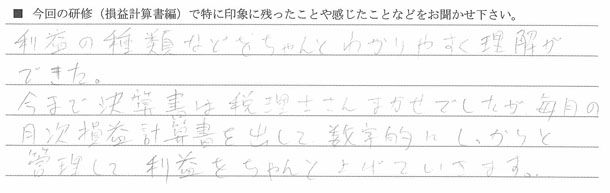 ■ 今回の研修（損益計算書編）で特に印象に残ったことや感じたことなどをお聞かせ下さい。
利益の種類などをちゃんとわかりやすく理解が
できた。
今まで決算書は税理士さんまかせでしたが、毎月の
月次損益計算書を出して、数字的にしっかりと
管理して利益をちゃんと上げていきます。